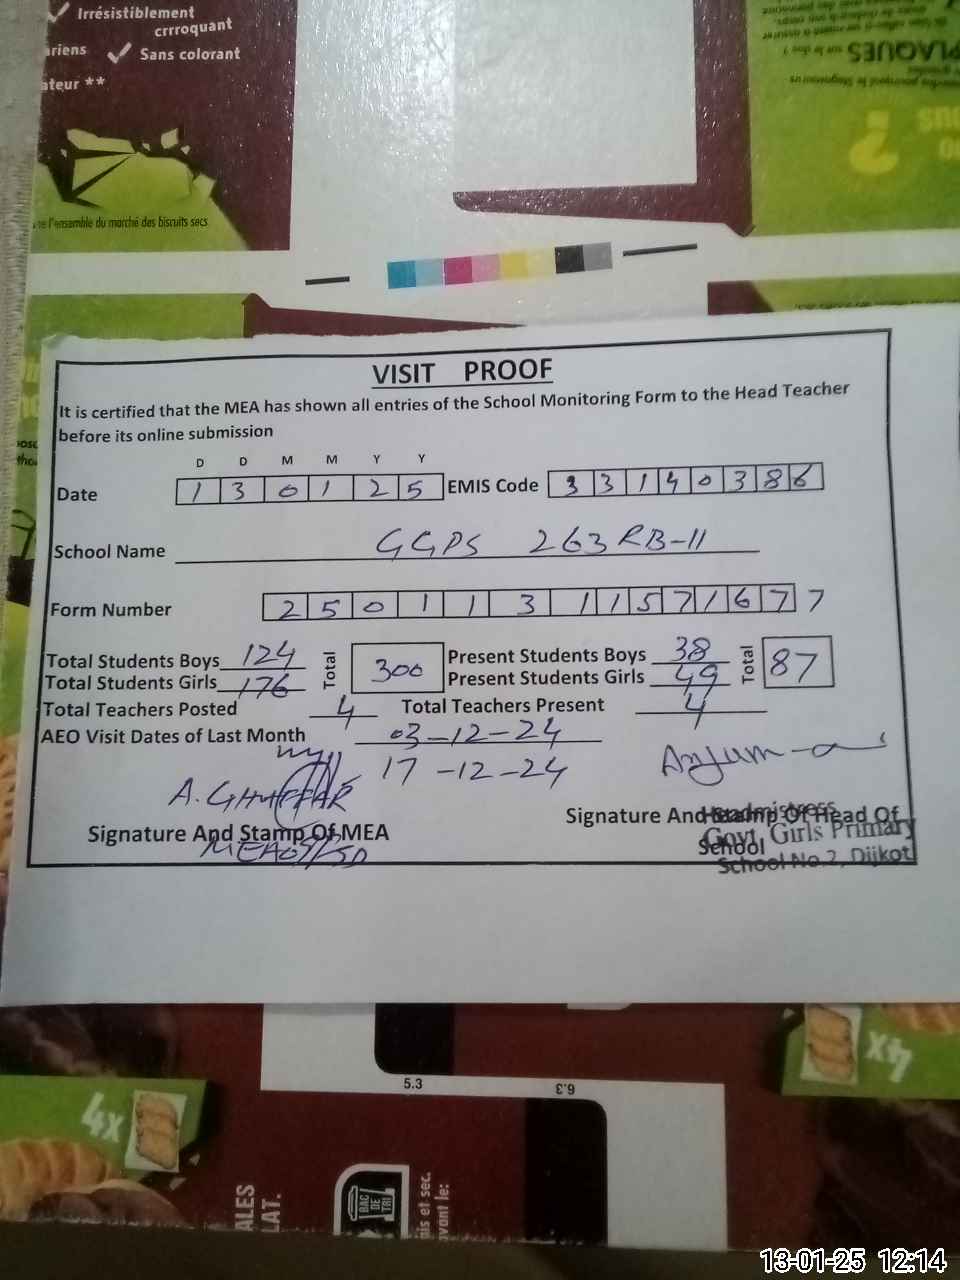 Irrésistiblement
crrroquant
ariens
Sans colorant
ateur **
l'ensemble du marché des biscuits secs
PLAQUES
?
VISIT PROOF
It is certified that the MEA has shown all entries of the School Monitoring Form to the Head Teacher
before its online submission
D D M M Y Y
Date 1 3 0 1 2 5 EMIS Code 3 3 1 4 0 3 8 6
School Name GGPS 263 RB-II
Form Number 2 5 0 1 1 3 1 1 5 7 1 6 7 7
Total Students Boys 124 Total 300 Present Students Boys 38 Total 87
Total Students Girls 176 Present Students Girls 49
Total Teachers Posted 4 Total Teachers Present 4
AEO Visit Dates of Last Month 03-12-24
17-12-24
A. GHAFFAR
Signature And Stamp Of MEA
Signature And Stamp Of Head Of
School
Headmistress
Govt. Girls Primary
School No.2, Dijkot
5.3
6.3
4x
x4
BAC
DE
TRI
ALES
LAT.
is et sec.
vant le:
13-01-25 12:14